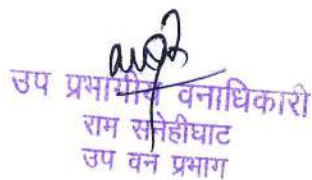 उप प्रभागीय वनाधिकारी
राम सनेहीघाट
उप वन प्रभाग